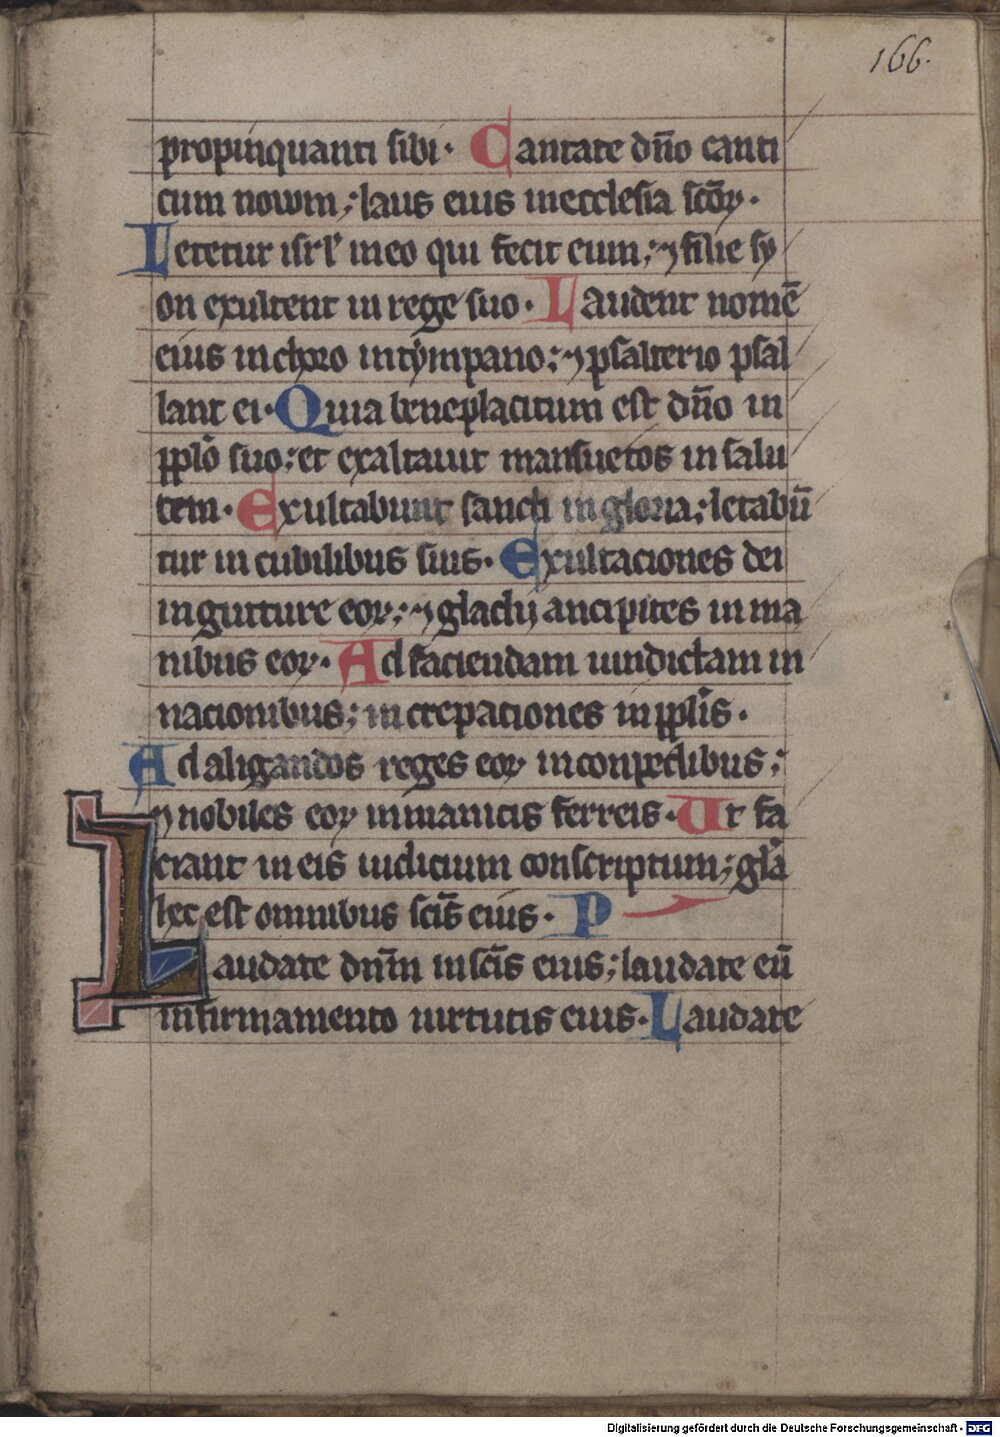 166.
propinquanti sibi· Cantate dño canti
cum nowm; laus eius in ecclesia scōꝝ·
Letetur isrl' in eo qui fecit eum; ⁊ filie sy
on exultent in rege suo· Laudent nomē
eius in choro in tympano; ⁊ psalterio psal
lant ei· Quia beneplacitum est dño in
pplō suo; et exaltauit mansuetos in salu
tem· Exultabunt sancti in gloria; letabū
tur in cubilibus suis· Exultaciones dei
in gutture eoꝝ; ⁊ gladij ancipites in ma
nibus eoꝝ· Ad faciendam uindictam in
nacionibus; increpationes in pplīs·
Ad aligandos reges eoꝝ in conpedibus;
⁊ nobiles eoꝝ in manicis ferreis· Ut fa
ciant in eis iudicium conscriptum; glā
hec est omnibus scīs eius· P
Laudate dnm̄ in scīs eius; laudate eū
in firmamento uirtutis eius· Laudate
Digitalisierung gefördert durch die Deutsche Forschungsgemeinschaft - DFG